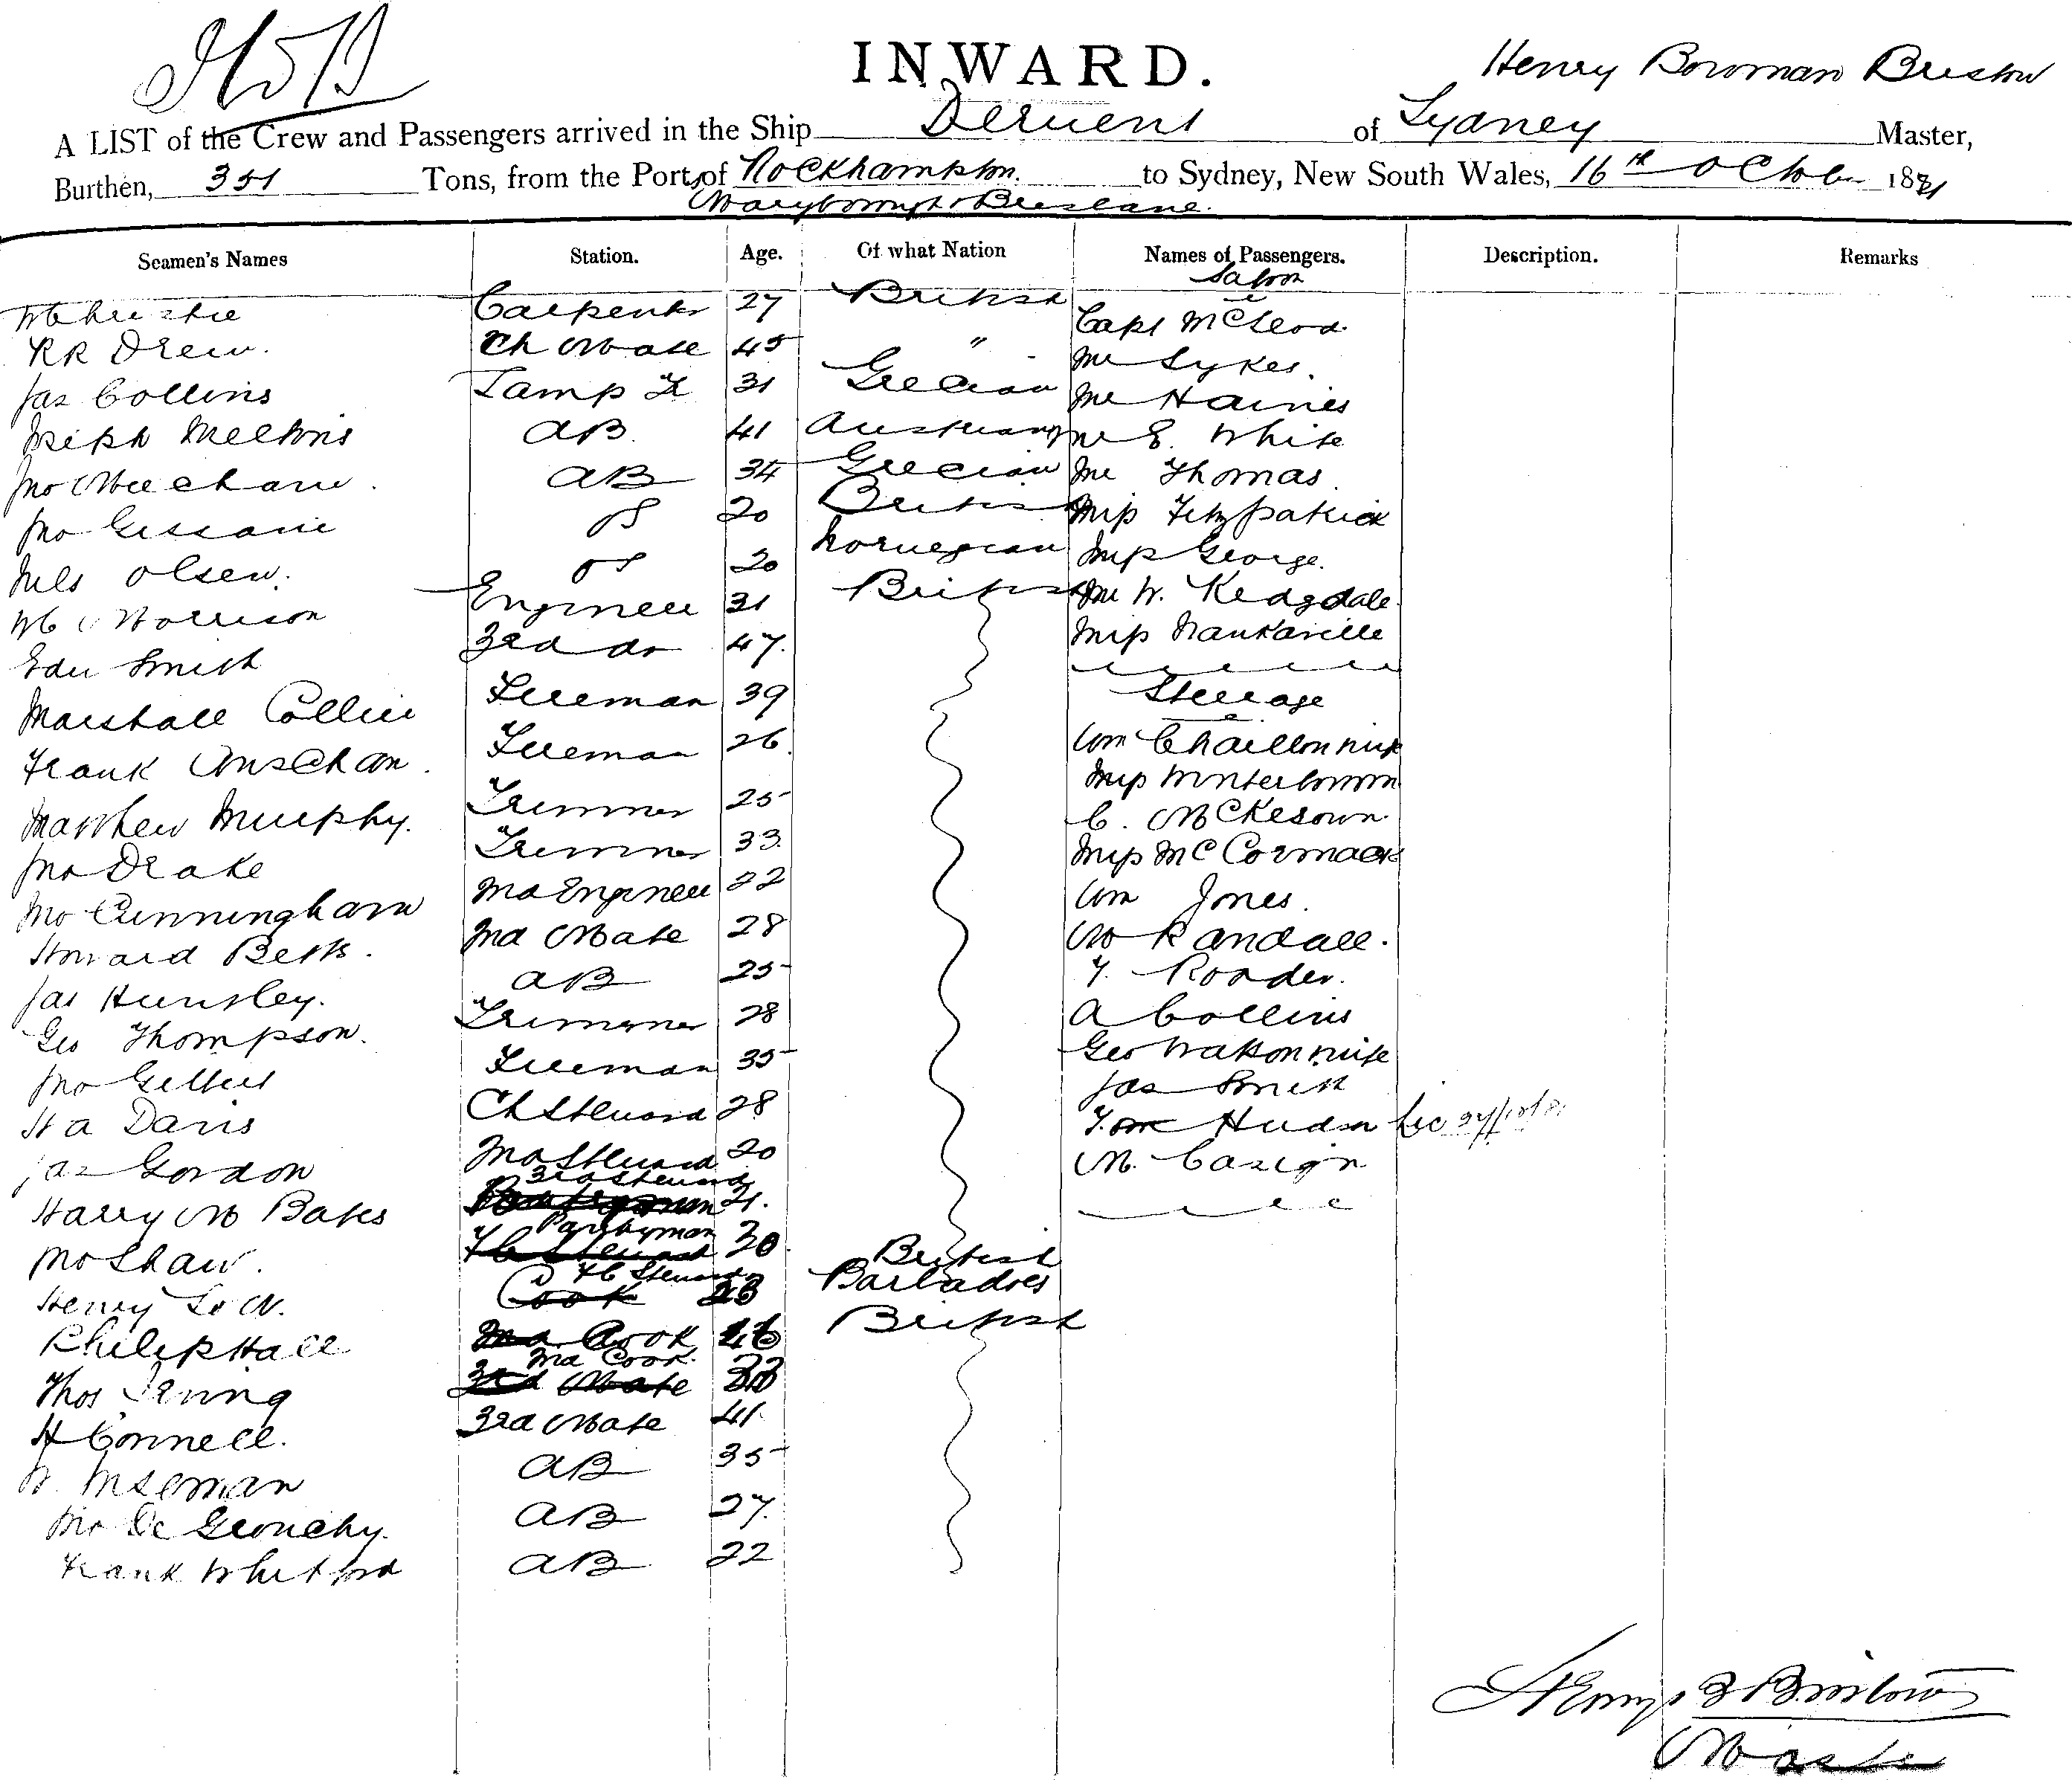 HB
INWARD.
Henry Bowman Bristow
A LIST of the Crew and Passengers arrived in the Ship Derwent of Sydney Master,
Burthen, 351 Tons, from the Ports of Rockhampton to Sydney, New South Wales, 16th October 1881
Maryborough & Brisbane.
Seamen's Names Station. Age. Of what Nation Names of Passengers. Description. Remarks
Saloon
W Christie Carpenter 27 British Capt McLeod
RR Drew. Ch Mate 45 " Mr Sykes.
Jas Collins Lamp Tr 31 Grecian Mr Haines
Joseph AB 41 Austrian Mr E. White
Jno AB 34 Grecian Mr Thomas.
Jno OS 20 British Miss Fitzpatrick
Nels Olsen. OS 20 Norwegian Miss George.
Wm Morrison Engineer 31 British Mr W.
Edw Smith 3rd do 47. Miss
Marshall Collier Fireman 39 Steerage
Frank Fireman 26. Wm & wife
Matthew Murphy. Trimmer 25 Miss Winterbourn
Jno Drake Trimmer 33. C. McKeown
Jno Cunningham 2nd Engineer 22 Miss McCormack
Howard Betts. 2nd Mate 28 Wm Jones.
Jas Hunsley. AB 25 M Randall.
Geo Thompson. Trimmer 28 T. Roader.
Jno Gilbert Fireman 35 A Collins
H A Davis Ch Steward 28 Geo Watson & wife
Jas Gordon 2nd Steward 20 Jas Smith
Harry M Bates 3rd Steward 21. T. Hudson
Jno Shaw. Pantryman 20. British M.
Henry Cook F C Steward Barbadoes
Philip Hall Cook 46 British
Thos Irving 3rd Mate 2nd Cook.
H Connell. 3rd Mate 41.
W. Wiseman AB 35
Jno De Gruchy. AB 27.
Frank Whitford AB 22
Henry B Bristow
Master